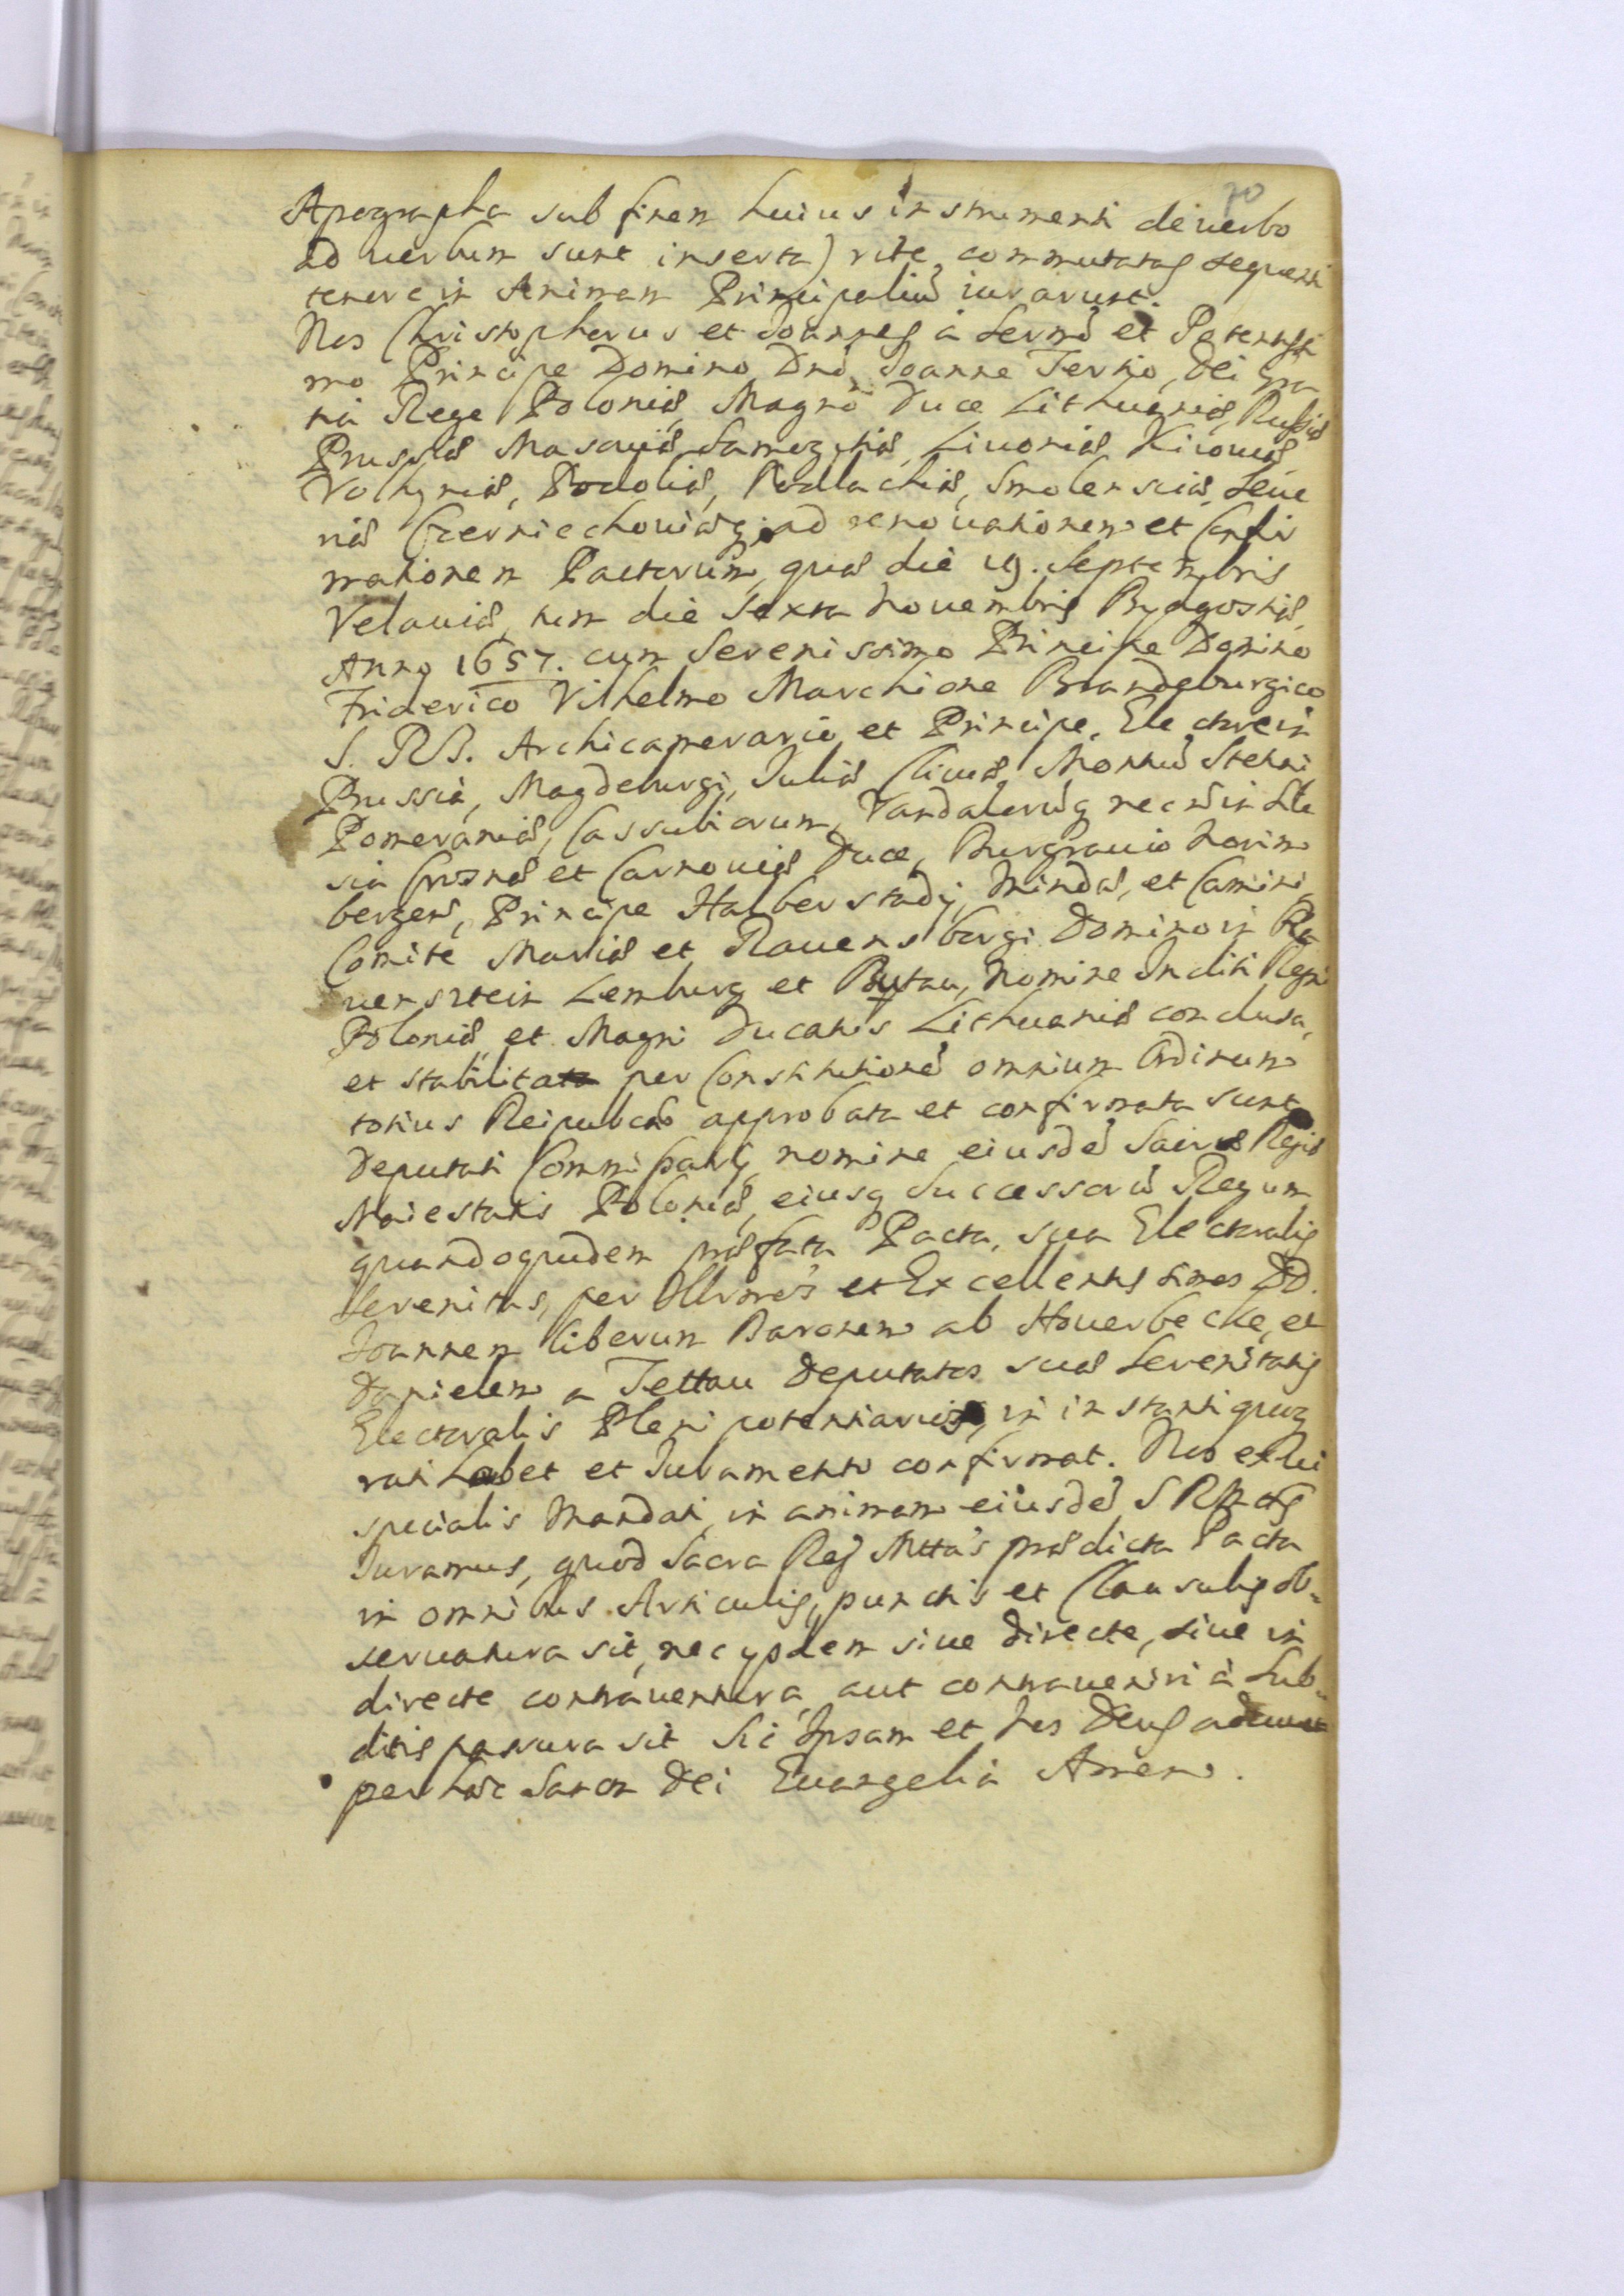 70
Apographa sub finem huius instrumenti de uerbo
ad uerbum sunt inserta) rite commutatas sequenti
tenore in Animam Principaliū iurarunt.
Nos Christopherus et Joannes à Sermō et Potentissi
mo Principe Domino Dnō Joanne Tertio, Dei gra
tia Rege Poloniæ, Magno Duce Lithuaniæ, Russiæ
Prussiæ Masouiæ Samogitiæ, Liuoniæ, Kiouiæ,
Volhyniæ, Podoliæ, Podlachiæ, Smolensciæ, Seue
riæ Czerniechouiæq; ad renouationem et Confir
mationem Pactorum, quæ die 19. Septembris
Velauiæ, tum die Sexta Nouembris Bydgostiæ,
Anno 1657. cum Serenissimo Principe Domino
Friderico Vilhelmo Marchione Brandeburgico
S. R. I. Archicamerario et Principe, Electore in
Prussia, Magdeburgi, Juliæ Cliuiæ, Montiū Stetini
Pomeraniæ, Cassubiorum, Vandalorūq necnō in Sile
sia Crosnæ et Carnouiæ Duce, Burgrauio Norim
bergens, Principe Halberstadij, Mindæ, et Camini,
Comite Marciæ et Rauensbergi Domino in Ra
uenstein Lemburg et Butau, Nomine Incliti Regni
Poloniæ, et Magni Ducatus Lithuaniæ conclusa,
et stabilita per Constitutionē omnium Ordinum
totius Reipubcæ approbata et confirmata sunt
Deputati Commissarij, nomine eiusdē Sacræ Regiæ
Maiestatis Poloniæ, eiusq Successorū Regum
quandoquidem præfata Pacta, sua Electoralis
Serenitas, per Illrmos et Excellentissimos DD.
Joannem liberum Baronem ab Houerbecke, et
Danielem a Tettau Deputatos suæ Serenitatis
Electoralis Plenipotentiarios, in instantiquoq
ratihabet et Iuramento confirmat. Nos ex ui
specialis Mandati, in animam eiusdē S R Mttis
Iuramus, quod Sacra Reg Mttas prædicta Pacta
in omnibus Articulis, punctis et Clausulis ob-
seruatura sit, nec ijsdem siue directe, siue in
directe contrauentura, aut contraueniri à Sub-
ditis passura sit Sic Ipsam et Nos Deus adiuuet
per hæc Sancta Dei Euangelia Amen.